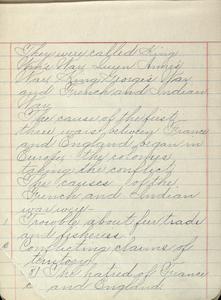 They were called King
Wm's War, Queen Anne's
War, King George's War
and French and Indian
War.
The cause of the first
three wars, between France
and England, began in
Europe the colonies
taking the conflict.
The causes of the
French and Indian
war were:
1 Rivalry about fur trade
and fisheries.
2 Conflicting claims of
territory.
3) The hatred of France
and England.